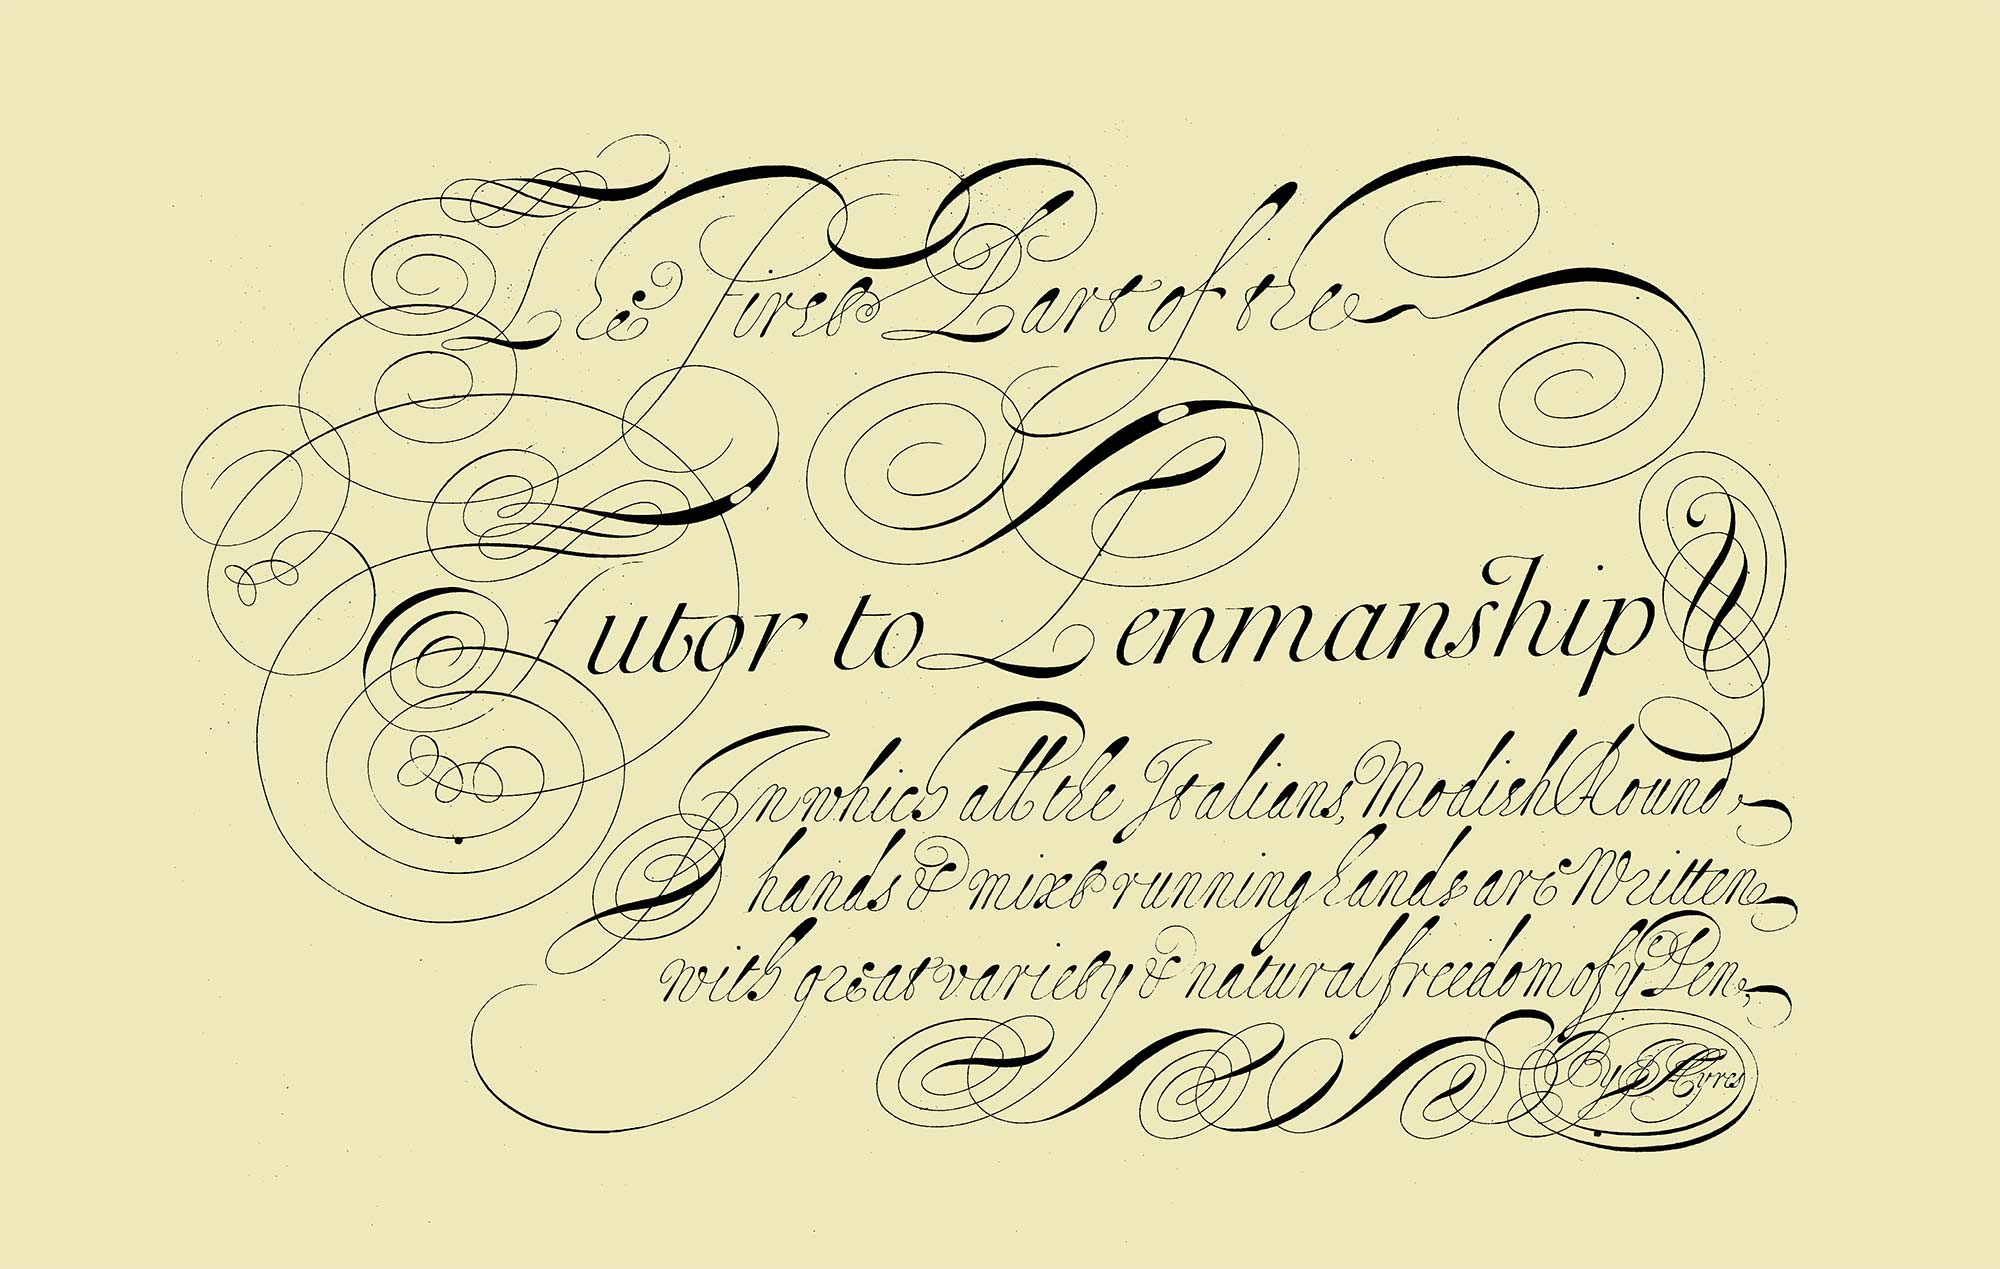 The first Part of the
Tutor to Penmanship
In which all the Italians, Modish Round,
hands & mixt running hands are Written,
with great variety & natural freedom of yͤ Pen,
By J Ayres